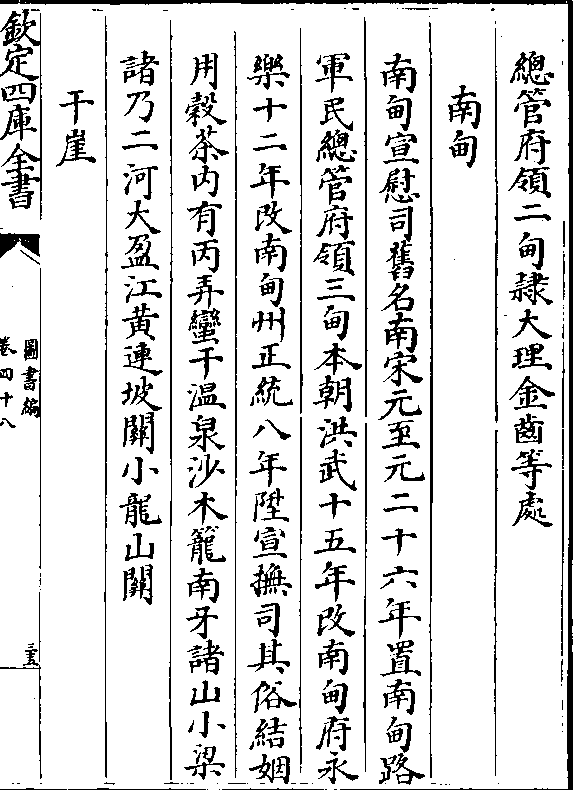 總管府領二甸隷大理金齒等處
南甸
南甸宣慰司舊名南宋元至元二十六年置南甸路
軍民總管府領三甸本朝洪武十五年改南甸府永
樂十二年改南甸州正統八年陞宣撫司其俗結姻
用穀茶内有丙弄蠻干温泉沙木籠南牙諸山小梁
諸乃二河大盈江黄連坡關小龍山關
干崖
欽定四庫全書
圖書編
卷四十八
三五